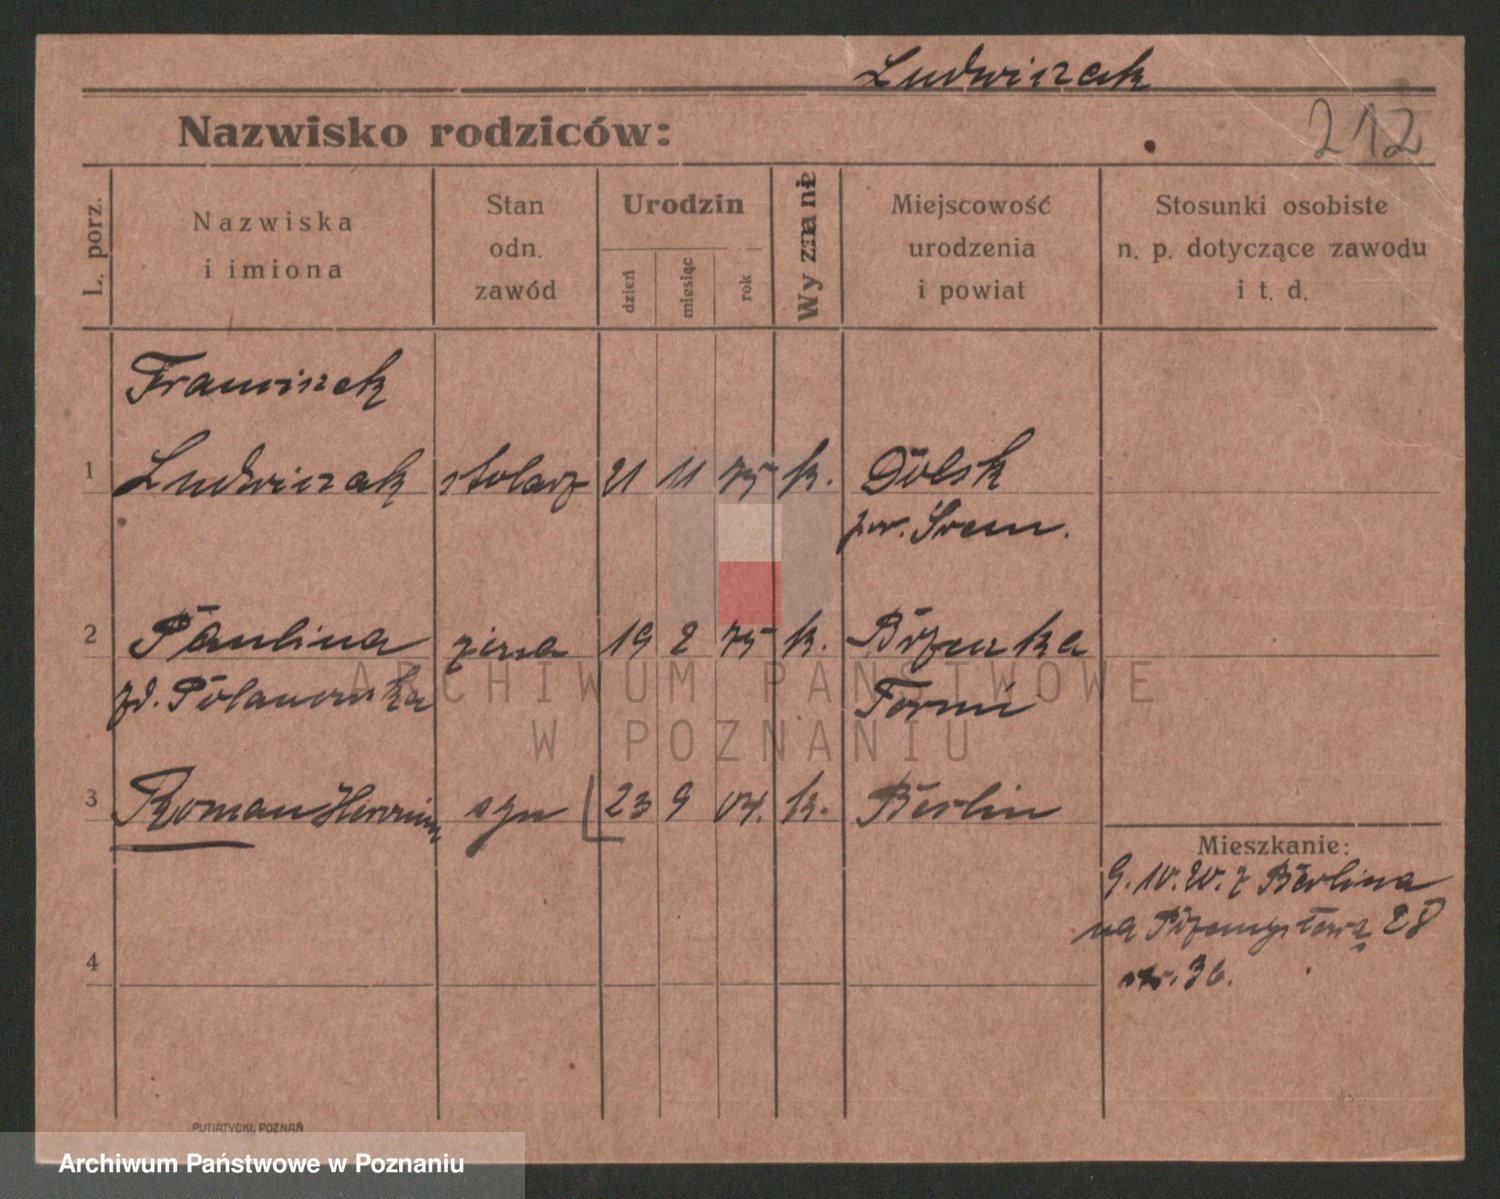 Ludwiczak
Nazwisko rodziców:
212
L. porz.
Nazwiska
i imiona
Stan
odn.
zawód
Urodzin
dzień
miesiąc
rok
Wyznanie
Miejscowość
urodzenia
i powiat
Stosunki osobiste
n. p. dotyczące zawodu
i t. d.
Franciszek
1 Ludwiczak stolarz 21 11 75 k. Dolsk
pw. Śrem.
2 Paulina żona 19 2 75 k.
zd. Polanowska Toruń
3 Roman syn 23 9 04. k. Berlin
Mieszkanie:
z Berlina
na Przemysłową 28
36.
4
ARCHIWUM PAŃSTWOWE
W POZNANIU
PUTIATYCKI, POZNAŃ
Archiwum Państwowe w Poznaniu